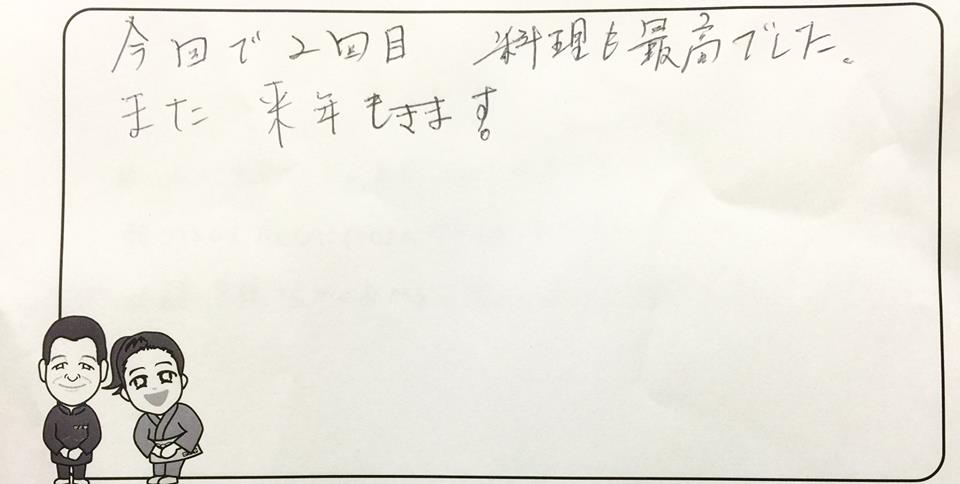 今回で2回目 料理も最高でした。
また 来年もきます。